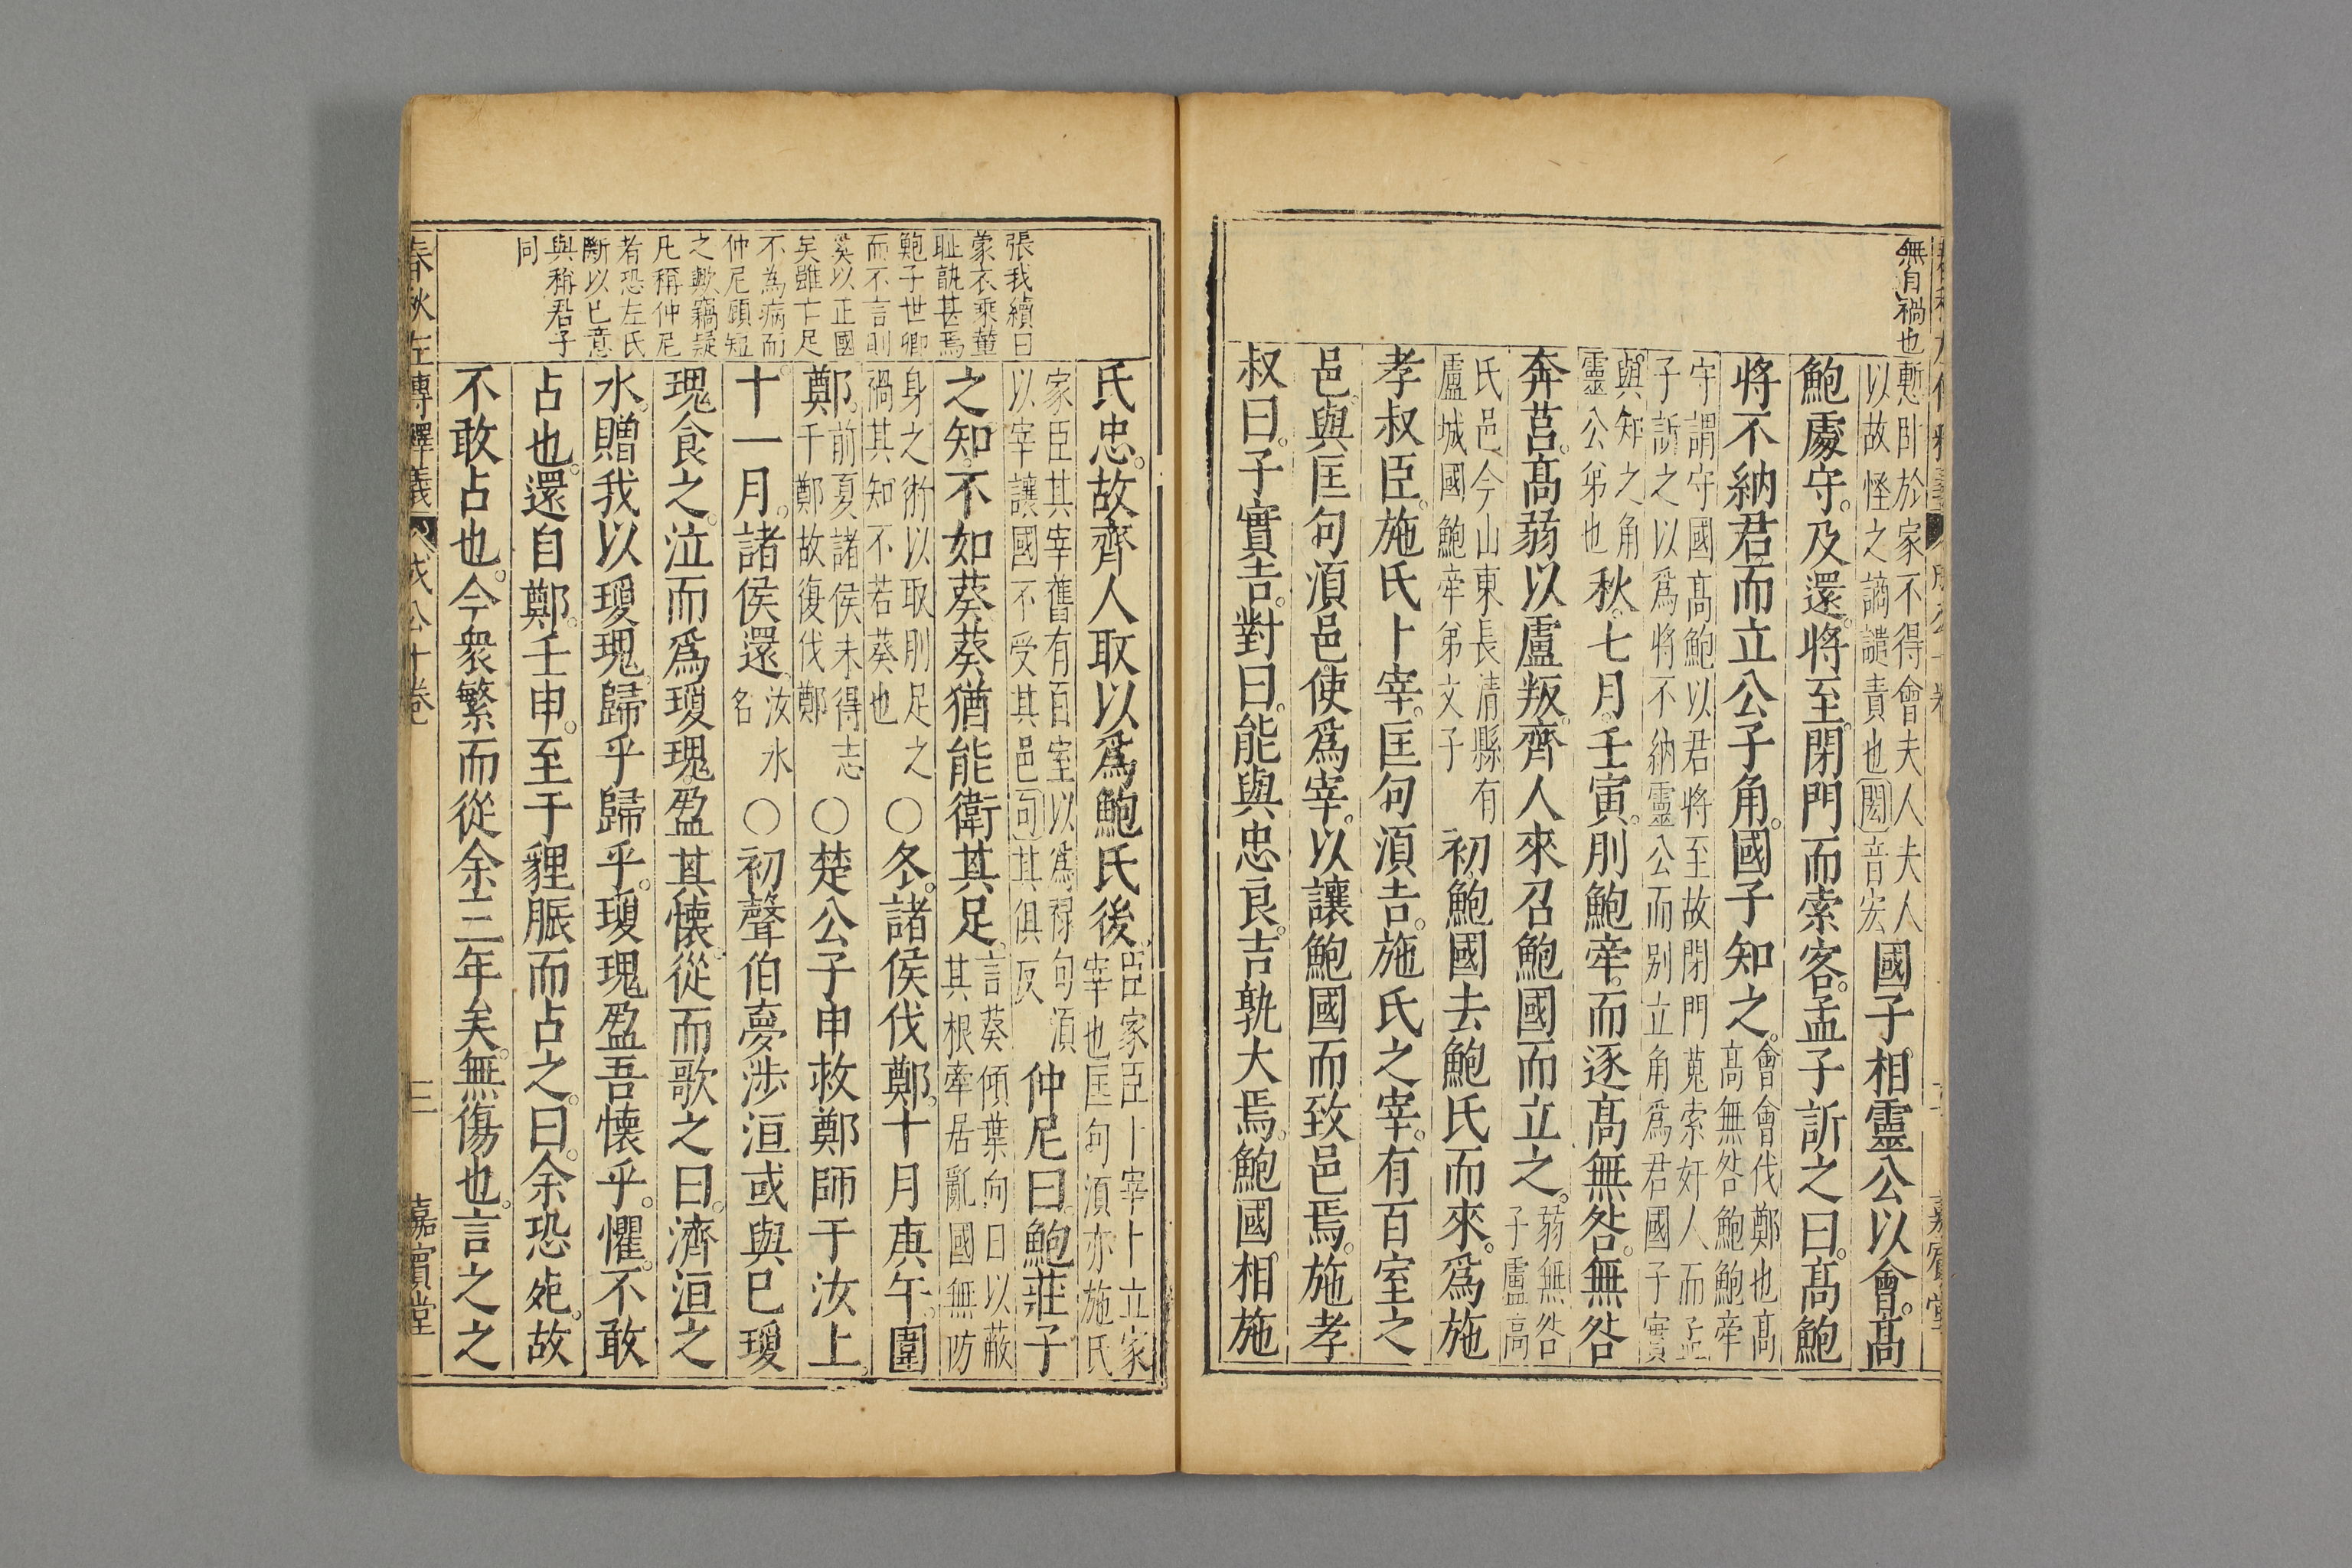 無有禍也
慙卧於家不得會夫人夫人
以故怪之謫譴責也閎音宏
國子相靈公以會高
鮑處守及還將至閉門而索客孟子訴之曰高鮑
將不納君而立公子角國子知之
會會伐鄭也高
高無咎鮑鮑牽
守謂守國高鮑以君將至故閉門蒐索奸人而孟
子訴之以爲將不納靈公而别立角爲君國子實
與知之角
靈公弟也
秋七月壬寅刖鮑牽而逐髙無咎無咎
奔莒髙弱以盧叛齊人來召鮑國而立之
弱無咎
子盧高
氏邑今山東長清縣有
盧城國鮑牽弟文子
初鮑國去鮑氏而來爲施
孝叔臣施氏卜宰匡句須吉施氏之宰有百室之
邑與匡句須邑使爲宰以讓鮑國而致邑焉施孝
叔曰子實吉對曰能與忠良吉孰大焉鮑國相施
張我續曰
蒙衣乘輦
耻孰甚焉
鮑子世卿
而不言則
奚以正國
矣雖亡足
不為病而
仲尼顧短
之歟竊疑
凡稱仲尼
者恐左氏
斷以已意
與稱君子
同
氏忠故齊人取以爲鮑氏後
臣家臣卜宰卜立家
宰也匡句須亦施氏
家臣其宰舊有百室以爲祿句須
以宰讓國不受其邑句其俱反
仲尼曰鮑莊子
之知不如葵葵猶能衛其足
言葵傾葉向日以蔽
其根牽居亂國無防
身之術以取刖足之
禍其知不若葵也
○冬諸侯伐鄭十月庚午圍
鄭
前夏諸侯未得志
于鄭故復伐鄭
○楚公子申救鄭師于汝上
十一月諸侯還
汝水
名
○初聲伯夢涉洹或與巳瓊
瑰食之泣而爲瓊瑰盈其懐從而歌之曰濟洹之
水贈我以瓊瑰歸乎歸乎瓊瑰盈吾懐乎懼不敢
占也還自鄭壬申至于貍脤而占之曰余恐死故
不敢占也今衆繁而從余三年矣無傷也言之之
春秋左傳釋義 成公十卷 三 嘉賓堂